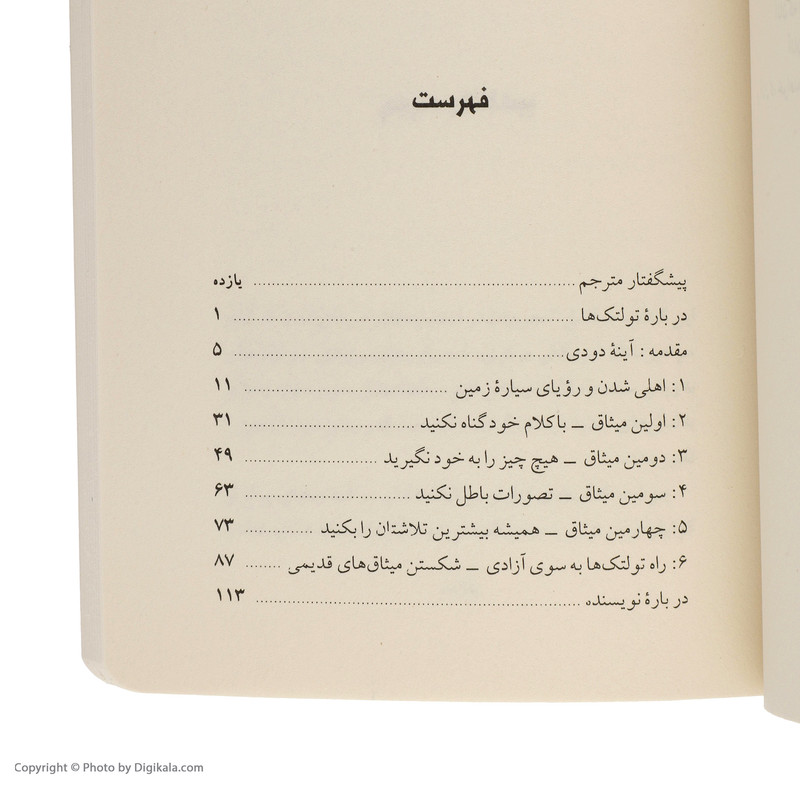 فهرست
پیشگفتار مترجم ........ یازده
دربارهٔ تولتک‌ها ........ ۱
مقدمه : آینهٔ دودی ........ ۵
۱: اهلی شدن و رؤیای سیارهٔ زمین ........ ۱۱
۲: اولین میثاق ــ با کلام خود گناه نکنید ........ ۳۱
۳: دومین میثاق ــ هیچ چیز را به خود نگیرید ........ ۴۹
۴: سومین میثاق ــ تصورات باطل نکنید ........ ۶۳
۵: چهارمین میثاق ــ همیشه بیشترین تلاشتان را بکنید ........ ۷۳
۶: راه تولتک‌ها به سوی آزادی ــ شکستن میثاق‌های قدیمی ........ ۸۷
دربارهٔ نویسنده ........ ۱۱۳
Copyright © Photo by Digikala.com